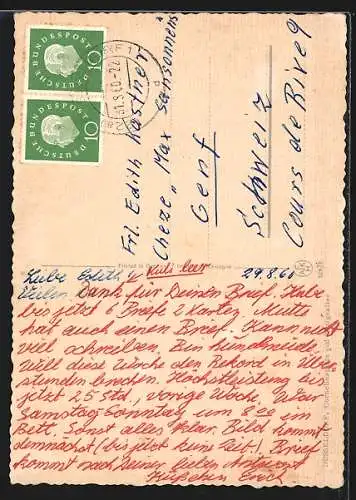 DEUTSCHE BUNDESPOST
10
DEUTSCHE BUNDESPOST
10
Frl. Edith Kastner
Cheze „Max Sansonnens
Genf
Schweiz
Cours de Rive 9
Liebe Edith, Kuli leer 29.8.60
Vielen Dank für Deinen Brief. Habe
bis jetzt 6 Briefe 2 Karten, Mutti
hat auch einen Brief. Kann nicht
viel schreiben. Bin hundemüde.
Will diese Woche den Rekord in Über-
stunden brechen. Höchstleistung bis
jetzt 25 Std., vorige Woche. War
Samstag-Sonntag um 8.00 im
Bett. Sonst alles klar. Bild kommt
demnächst (bis jetzt keine Zeit). Brief
kommt nach Deiner lieben Antwort